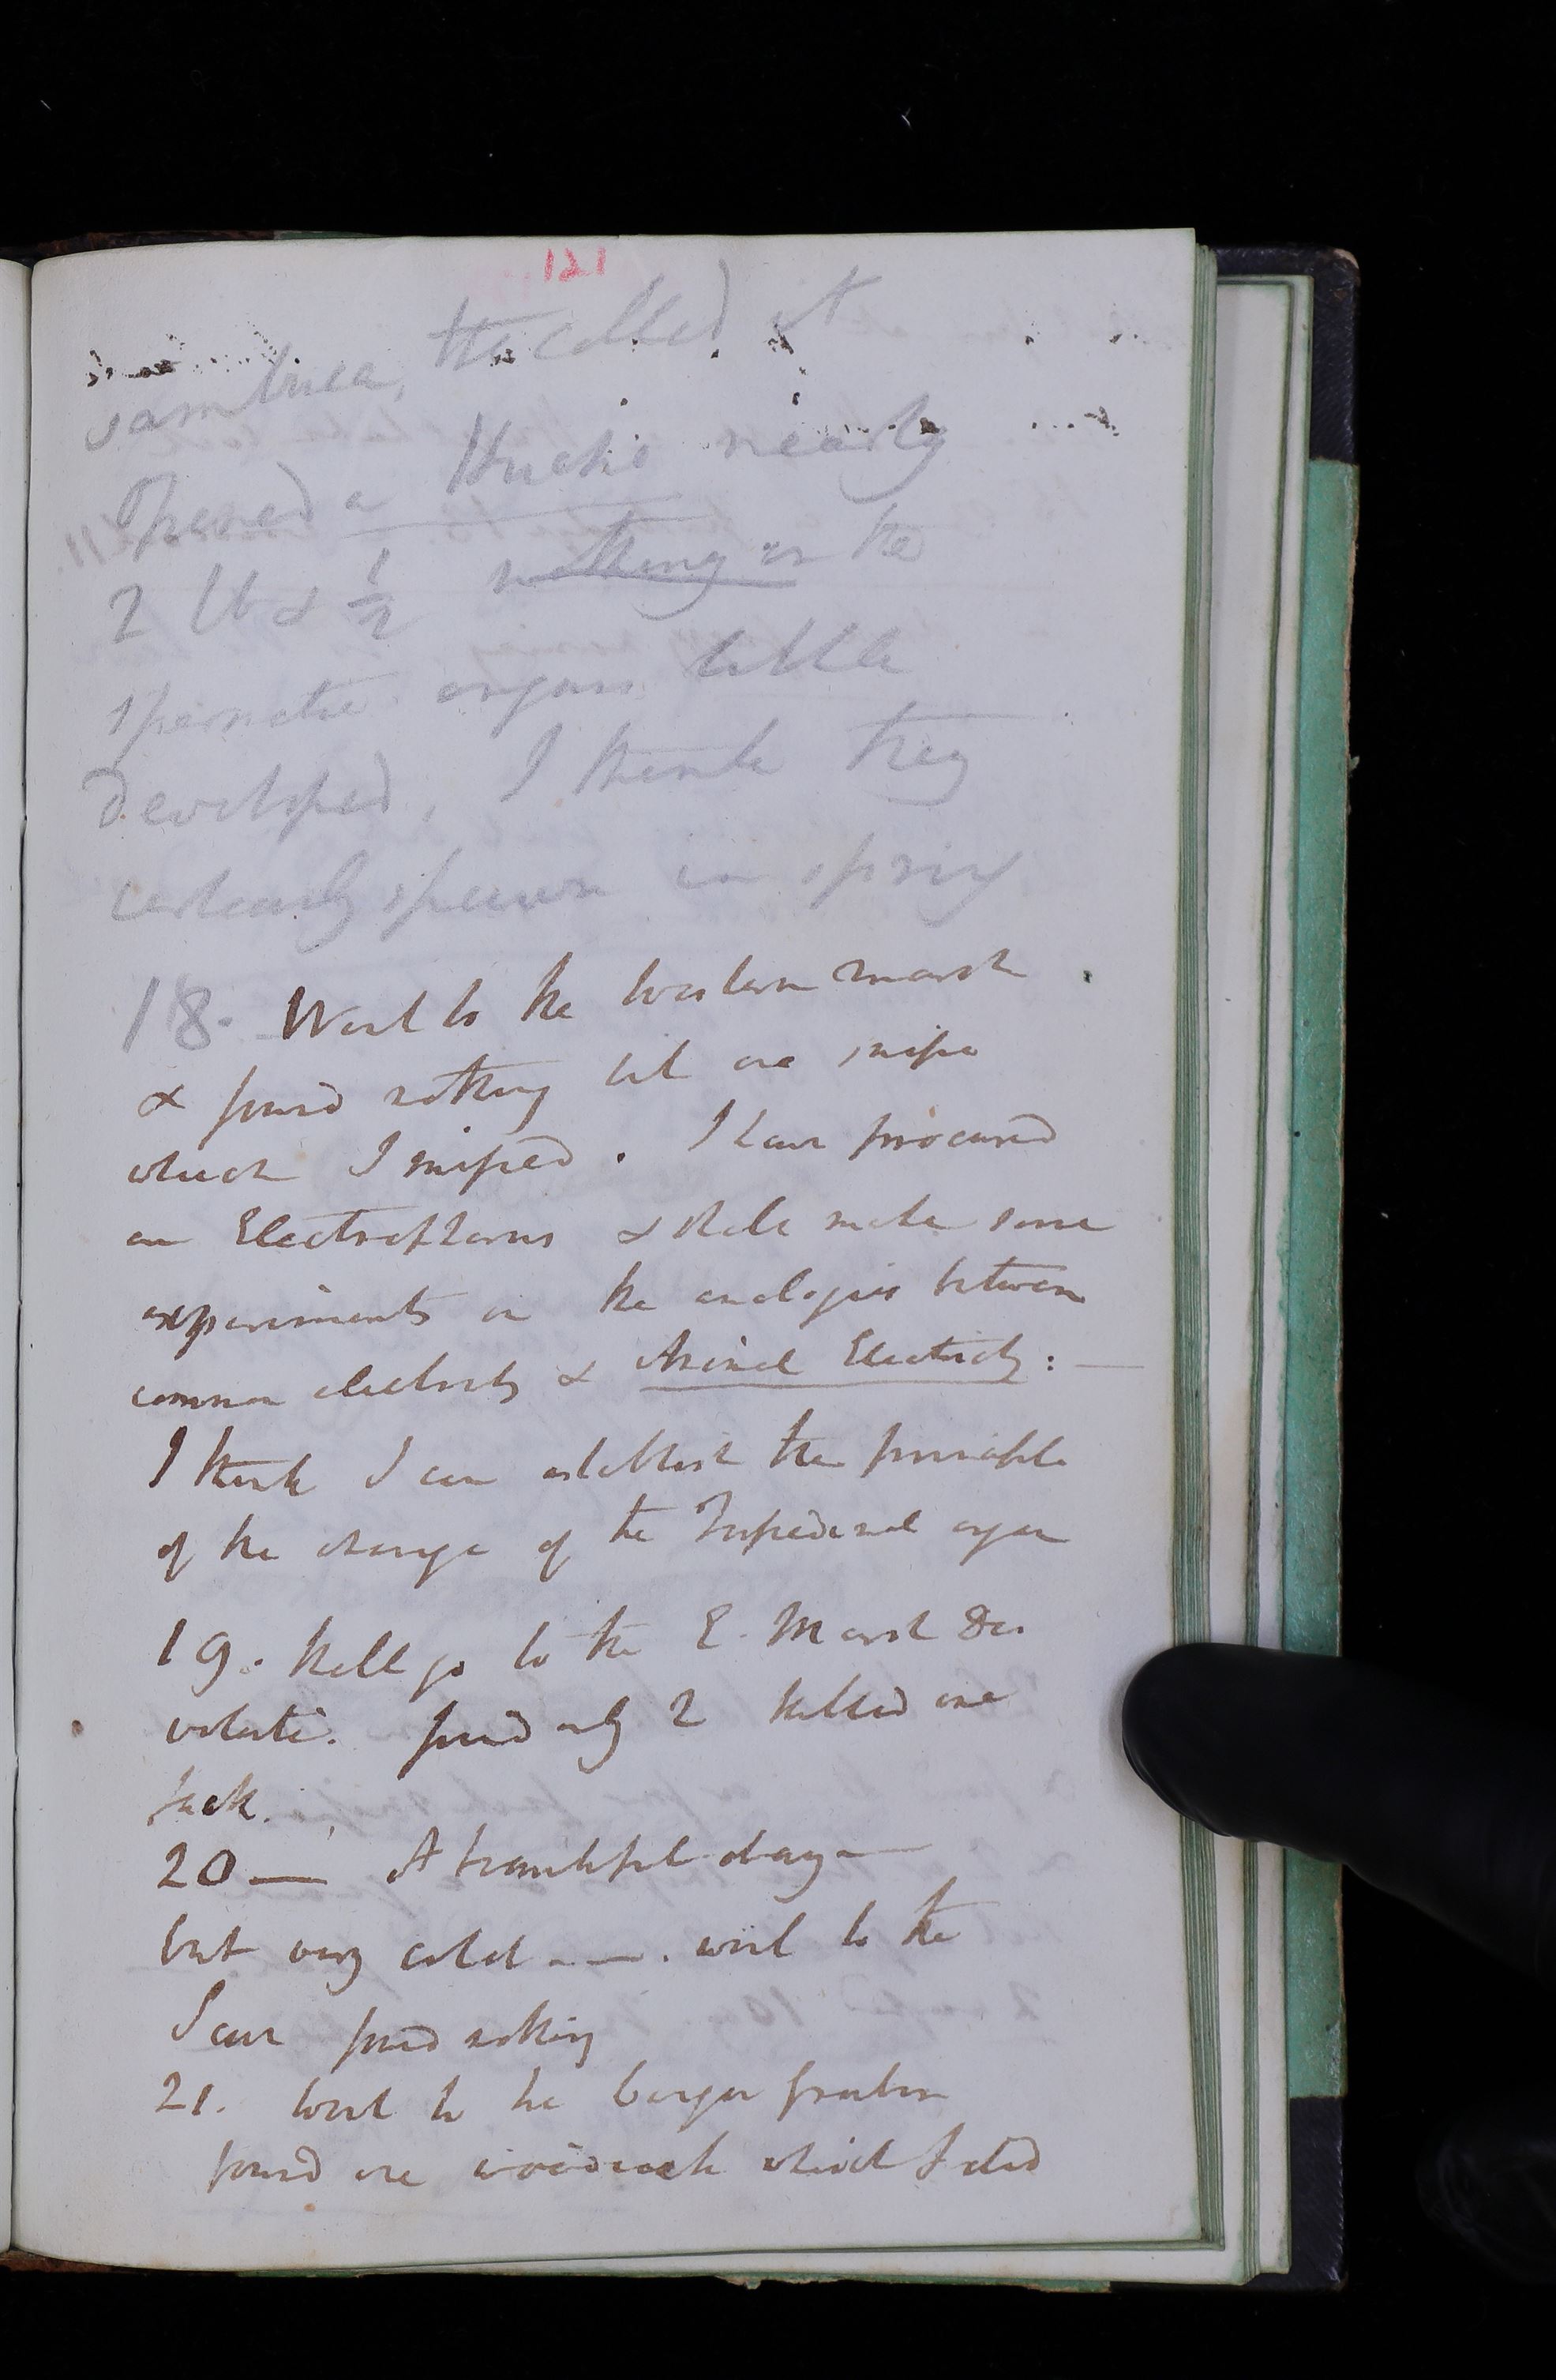 121
sambuca, they called it
Opened a Hucho nearly
2 lb & 1/2 nothing in the
spermatic organs little
developed, I think they
certainly spawn in spring
18. Went to the western marsh
& found nothing but one snipe
which I missed. I have procured
an Electrophorus & shall make some
experiments on the analogies between
common electricity & Animal Electricity: —
I think I can establish the principle
of the charge of the Torpedinal organ
19. Shall go to the E. Marsh Deo
volente. found only 2 killed one
jack.
20 — A beautiful day —
but very cold — . went to the
Save found nothing
21. Went to the
found one woodcock which I did